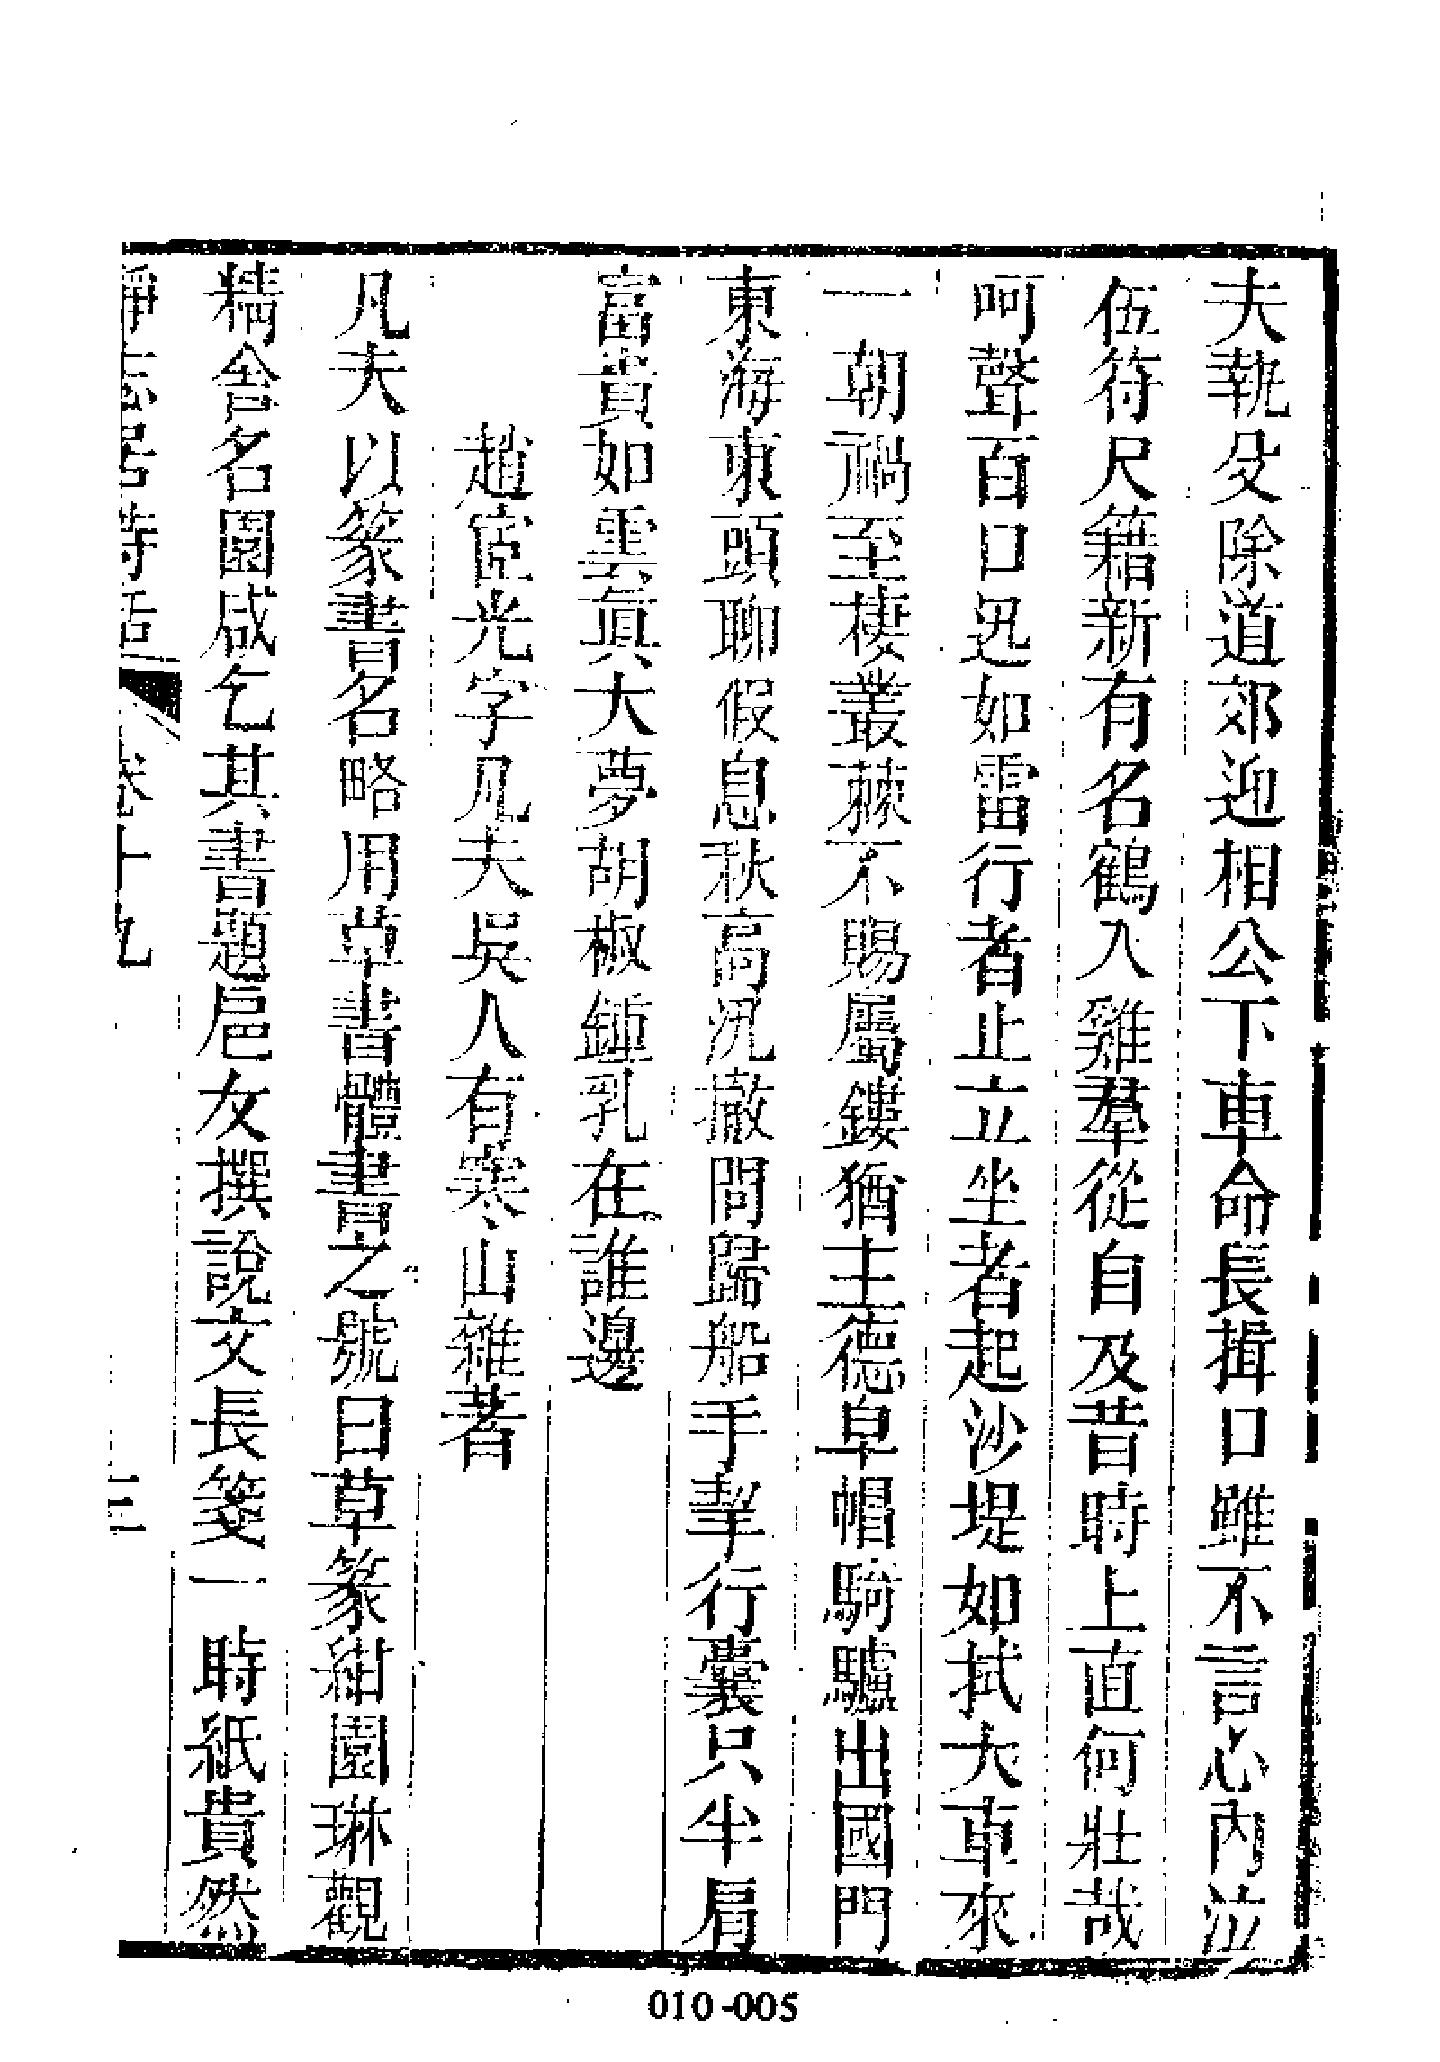 夫執殳除道郊迎相公下車命長揖口雖不言心內泣
伍符尺籍新有名鶴入雞羣從自及昔時上直何壯哉
呵聲百口迅如雷行者止立坐者起沙堤如拭大車來
一朝禍至棲叢棘不賜屬鏤猶主德皁帽騎驢出國門
東海東頭聊假息秋高汛撤問歸船手挈行囊只半肩
富貴如雲眞大夢胡椒鍾乳在誰邊
趙宧光字凡夫吳人有寒山雜著
凡夫以篆書名略用草書體書之號曰草篆紺園琳觀
精舍名園咸乞其書題巵友撰說文長箋一時紙貴然
靜志居詩話
卷十九
三
010-005